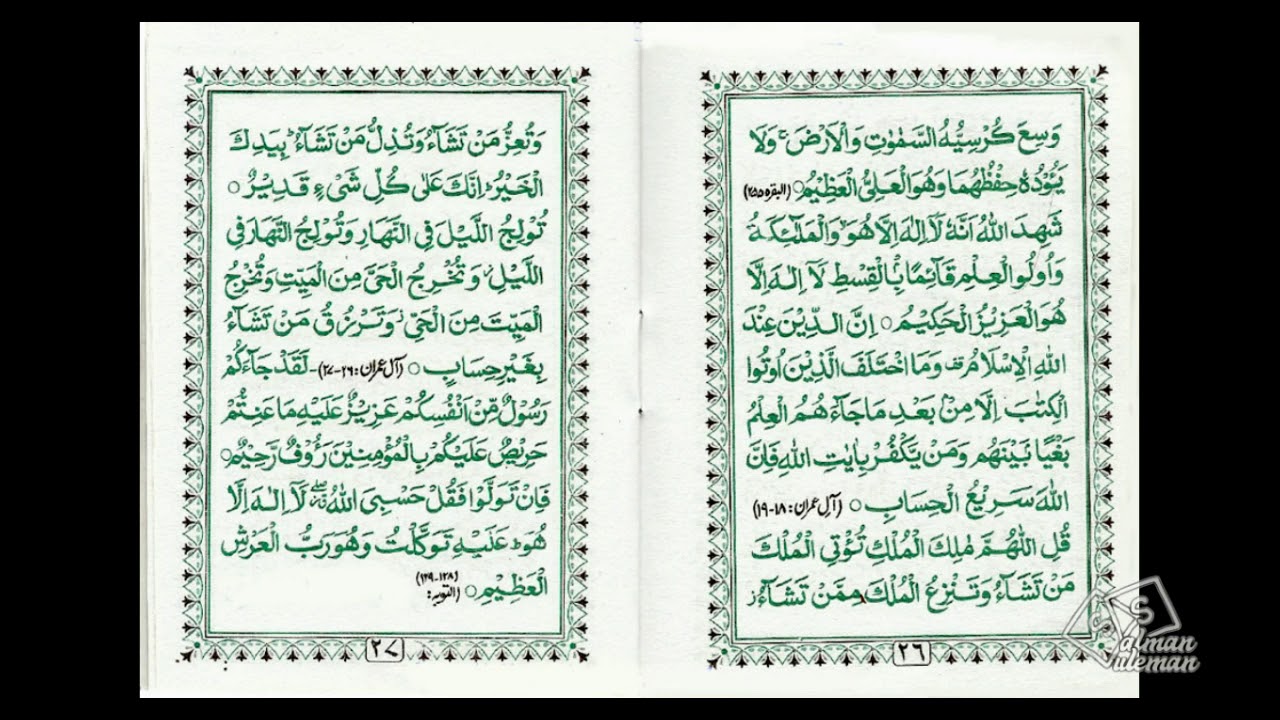 وَسِعَ كُرْسِيُّهُ السَّمٰوٰتِ وَالْاَرْضَ ۚ وَلَا
يَئُوْدُهٗ حِفْظُهُمَا وَهُوَ الْعَلِىُّ الْعَظِيْمُ ○ (البقره ۲۵۵)
شَهِدَ اللّٰهُ اَنَّهٗ لَآ اِلٰهَ اِلَّا هُوَ ۙ وَالْمَلٰٓئِكَةُ
وَاُولُوا الْعِلْمِ قَآئِمًا ۢبِالْقِسْطِ لَآ اِلٰهَ اِلَّا
هُوَ الْعَزِيْزُ الْحَكِيْمُ ○ اِنَّ الدِّيْنَ عِنْدَ
اللّٰهِ الْاِسْلَامُ ۫ وَمَا اخْتَلَفَ الَّذِيْنَ اُوْتُوا
الْكِتٰبَ اِلَّا مِنْۢ بَعْدِ مَا جَآءَهُمُ الْعِلْمُ
بَغْيًا ۢبَيْنَهُمْ وَمَنْ يَّكْفُرْ بِاٰيٰتِ اللّٰهِ فَاِنَّ
اللّٰهَ سَرِيْعُ الْحِسَابِ ○ (آل عمران: ۱۸-۱۹)
قُلِ اللّٰهُمَّ مٰلِكَ الْمُلْكِ تُؤْتِى الْمُلْكَ
مَنْ تَشَآءُ وَتَنْزِعُ الْمُلْكَ مِمَّنْ تَشَآءُ ز
٢٦
وَتُعِزُّ مَنْ تَشَآءُ وَتُذِلُّ مَنْ تَشَآءُ ؕ بِيَدِكَ
الْخَيْرُ ؕ اِنَّكَ عَلٰى كُلِّ شَىْءٍ قَدِيْرٌ ○
تُوْلِجُ اللَّيْلَ فِى النَّهَارِ وَتُوْلِجُ النَّهَارَ فِى
اللَّيْلِ ؗ وَتُخْرِجُ الْحَىَّ مِنَ الْمَيِّتِ وَتُخْرِجُ
الْمَيِّتَ مِنَ الْحَىِّ ؗ وَتَرْزُقُ مَنْ تَشَآءُ
بِغَيْرِ حِسَابٍ ○ (آل عمران: ۲۶-۲۷)- لَقَدْ جَآءَكُمْ
رَسُوْلٌ مِّنْ اَنْفُسِكُمْ عَزِيْزٌ عَلَيْهِ مَا عَنِتُّمْ
حَرِيْصٌ عَلَيْكُمْ بِالْمُؤْمِنِيْنَ رَءُوْفٌ رَّحِيْمٌ ○
فَاِنْ تَوَلَّوْا فَقُلْ حَسْبِىَ اللّٰهُ ۖ لَآ اِلٰهَ اِلَّا
هُوَ ؕ عَلَيْهِ تَوَكَّلْتُ وَهُوَ رَبُّ الْعَرْشِ
الْعَظِيْمِ ○ (التوبه: ۱۲۸-۱۲۹)
٢٧
Salman
Suleman